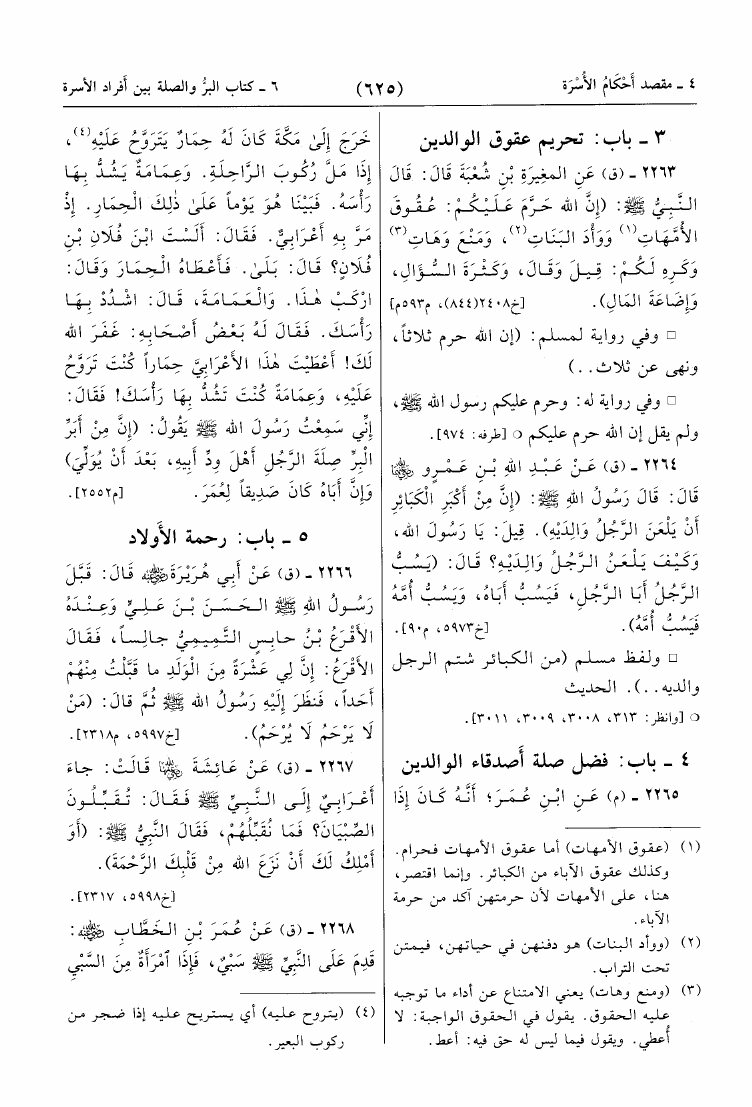 ٤ ـ مقصد أَحْكَامُ الأُسْرَة
(٦٢٥)
٦ ـ كتاب البرُّ والصلة بين أفراد الأسرة
٣ ـ باب: تحريم عقوق الوالدين
٢٢٦٣ ـ (ق) عَنِ المغِيرَةِ بْنِ شُعْبَةَ قَالَ: قَالَ
النَّبِيُّ ﷺ: (إِنَّ الله حَرَّمَ عَلَيْكُمْ: عُقُوقَ
الأُمَّهَاتِ(١) وَوَأْدَ البَنَاتِ(٢)، وَمَنْعَ وَهَاتِ(٣)
وَكَرِهَ لَكُمْ: قِيلَ وَقَالَ، وَكَثْرَةَ السُّؤَالِ،
وَإِضَاعَةَ المَالِ). [خ٢٤٠٨(٨٤٤)، م٥٩٣م]
□ وفي رواية لمسلم: (إن الله حرم ثلاثاً،
ونهى عن ثلاث..)
□ وفي رواية له: وحرم عليكم رسول الله ﷺ،
ولم يقل إن الله حرم عليكم ○ [طرفه: ٩٧٤].
٢٢٦٤ ـ (ق) عَنْ عَبْدِ اللهِ بْنِ عَمْرٍو ﵄
قَالَ: قَالَ رَسُولُ اللهِ ﷺ: (إِنَّ مِنْ أَكْبَرِ الْكَبَائِرِ
أَنْ يَلْعَنَ الرَّجُلُ وَالِدَيْهِ). قِيلَ: يَا رَسُولَ الله،
وَكَيْفَ يَلْعَنُ الرَّجُلُ وَالِدَيْهِ؟ قَالَ: (يَسُبُّ
الرَّجُلُ أَبَا الرَّجُلِ، فَيَسُبُّ أَبَاهُ، وَيَسُبُّ أُمَّهُ
فَيَسُبُّ أُمَّهُ). [خ٥٩٧٣، م٩٠].
□ ولفظ مسلم (من الكبائر شتم الرجل
والديه..). الحديث
○ [وانظر: ٣١٣، ٣٠٠٨، ٣٠٠٩، ٣٠١١].
٤ ـ باب: فضل صلة أصدقاء الوالدين
٢٢٦٥ ـ (م) عَنِ ابْنِ عُمَرَ؛ أَنَّهُ كَانَ إِذَا
(١) (عقوق الأمهات) أما عقوق الأمهات فحرام.
وكذلك عقوق الآباء من الكبائر. وإنما اقتصر،
هنا، على الأمهات لأن حرمتهن آكد من حرمة
الآباء.
(٢) (ووأد البنات) هو دفنهن في حياتهن، فيمتن
تحت التراب.
(٣) (ومنع وهات) يعني الامتناع عن أداء ما توجبه
عليه الحقوق. يقول في الحقوق الواجبة: لا
أُعطي. ويقول فيما ليس له حق فيه: أعط.
خَرَجَ إِلَىٰ مَكَّةَ كَانَ لَهُ حِمَارٌ يَتَرَوَّحُ عَلَيْهِ(٤)،
إِذَا مَلَّ رُكُوبَ الرَّاحِلَةِ. وَعِمَامَةٌ يَشُدُّ بِهَا
رَأْسَهُ. فَبَيْنَا هُوَ يَوْماً عَلَىٰ ذٰلِكَ الْحِمَارِ. إِذْ
مَرَّ بِهِ أَعْرَابِيٌّ. فَقَالَ: أَلَسْتَ ابْنَ فُلَانِ بْنِ
فُلَانٍ؟ قَالَ: بَلَىٰ. فَأَعْطَاهُ الْحِمَارَ وَقَالَ:
ارْكَبْ هٰذَا. وَالْعِمَامَةَ، قَالَ: اشْدُدْ بِهَا
رَأْسَكَ. فَقَالَ لَهُ بَعْضُ أَصْحَابِهِ: غَفَرَ الله
لَكَ! أَعْطَيْتَ هٰذَا الأَعْرَابِيَّ حِمَاراً كُنْتَ تَرَوَّحُ
عَلَيْهِ، وَعِمَامَةً كُنْتَ تَشُدُّ بِهَا رَأْسَكَ! فَقَالَ:
إِنِّي سَمِعْتُ رَسُولَ الله ﷺ يَقُولُ: (إِنَّ مِنْ أَبَرِّ
الْبِرِّ صِلَةَ الرَّجُلِ أَهْلَ وِدِّ أَبِيهِ، بَعْدَ أَنْ يُوَلِّيَ)
وَإِنَّ أَبَاهُ كَانَ صَدِيقاً لِعُمَرَ. [م٢٥٥٢].
٥ ـ باب: رحمة الأولاد
٢٢٦٦ ـ (ق) عَنْ أَبِي هُرَيْرَةَ ﵁ قَالَ: قَبَّلَ
رَسُولُ اللهِ ﷺ الحَسَنَ بْنَ عَلِيٍّ وَعِنْدَهُ
الأَقْرَعُ بْنُ حابِسٍ التَّمِيمِيُّ جالِساً، فَقَالَ
الأَقْرَعُ: إِنَّ لِي عَشْرَةً مِنَ الْوَلَدِ ما قَبَّلْتُ مِنْهُمْ
أَحَداً، فَنَظَرَ إِلَيْهِ رَسُولُ الله ﷺ ثُمَّ قالَ: (مَنْ
لَا يَرْحَمُ لَا يُرْحَمُ). [خ٥٩٩٧، م٢٣١٨].
٢٢٦٧ ـ (ق) عَنْ عَائِشَةَ ﵂ قَالَتْ: جاءَ
أَعْرَابِيٌّ إِلَى النَّبِيِّ ﷺ فَقَالَ: تُقَبِّلُونَ
الصِّبْيَانَ؟ فَمَا نُقَبِّلُهُمْ، فَقَالَ النَّبِيُّ ﷺ: (أَوَ
أَمْلِكُ لَكَ أَنْ نَزَعَ الله مِنْ قَلْبِكَ الرَّحْمَةَ).
[خ٥٩٩٨، ٢٣١٧].
٢٢٦٨ ـ (ق) عَنْ عُمَرَ بْنِ الخَطَّابِ ﵁:
قَدِمَ عَلَى النَّبِيِّ ﷺ سَبْيٌ، فَإِذَا ٱمْرَأَةٌ مِنَ السَّبْيِ
(٤) (يتروح عليه) أي يستريح عليه إذا ضجر من
ركوب البعير.